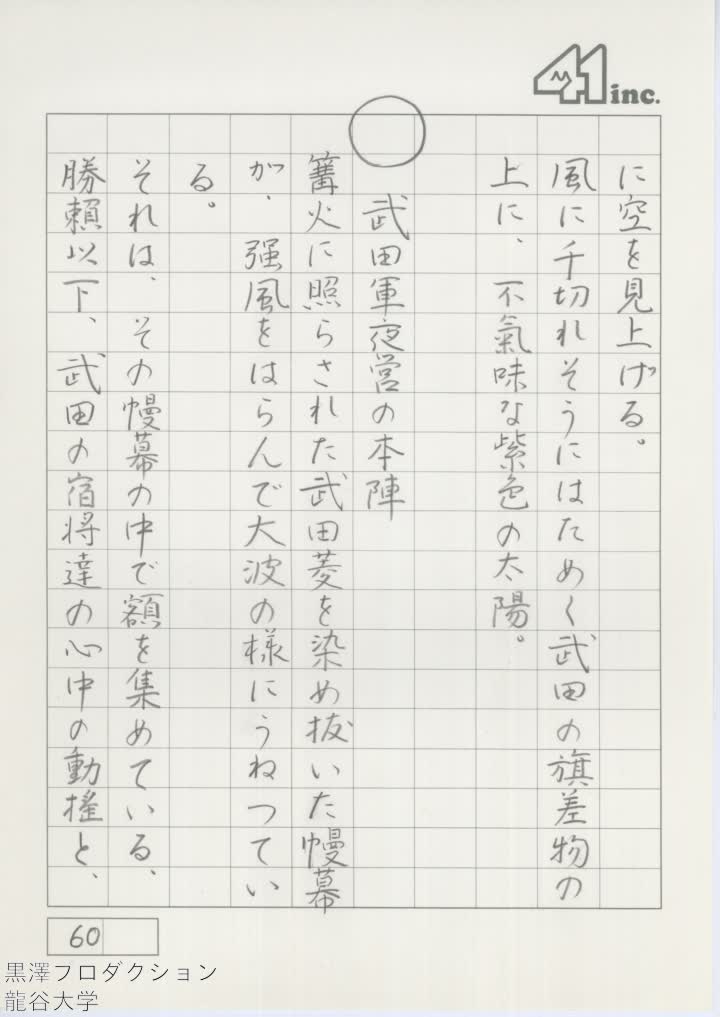 41 inc.
に空を見上げる。
風に千切れそうにはためく武田の旗差物の
上に、不氣味な紫色の太陽。
○
武田軍夜営の本陣
篝火に照らされた武田菱を染め抜いた幔幕
が、強風をはらんで大波の様にうねってい
る。
それは、その幔幕の中で額を集めている、
勝頼以下、武田の宿将達の心中の動揺と、
60
黒澤プロダクション
龍谷大学